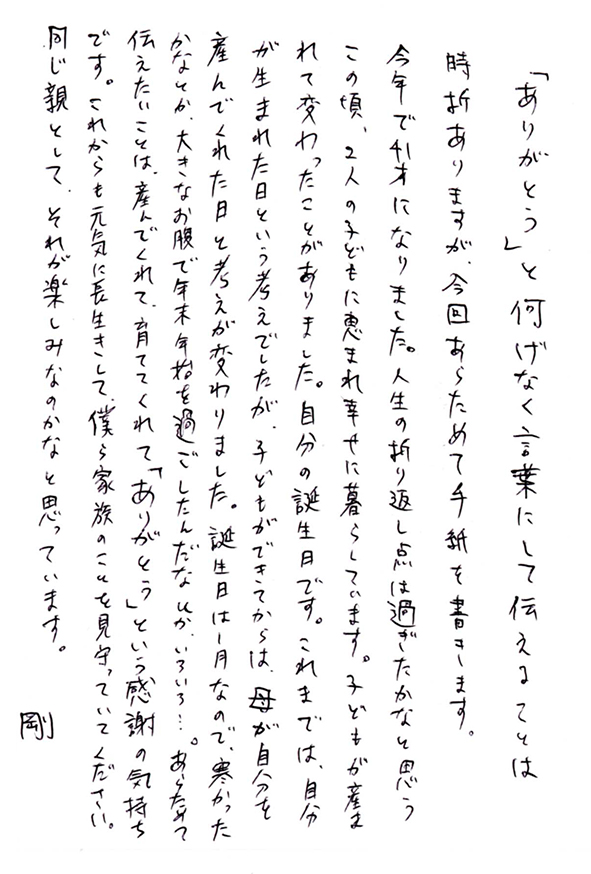 「ありがとう」と何げなく言葉にして伝えることは
時折ありますが、今回あらためて手紙を書きます。
今年で41才になりました。人生の折り返し点は過ぎたかなと思う
この頃、2人の子どもに恵まれ幸せに暮らしています。子どもが産ま
れて変わったことがありました。自分の誕生日です。これまでは、自分
が生まれた日という考えでしたが、子どもができてからは、母が自分を
産んでくれた日と考えが変わりました。誕生日は1月なので、寒かった
かなとか、大きなお腹で年末年始を過ごしたんだなとか、いろいろ…。あらためて
伝えたいことは、産んでくれて、育ててくれて「ありがとう」という感謝の気持ち
です。これからも元気に長生きして、僕ら家族のことを見守っていてください。
同じ親として、それが楽しみなのかなと思っています。
剛